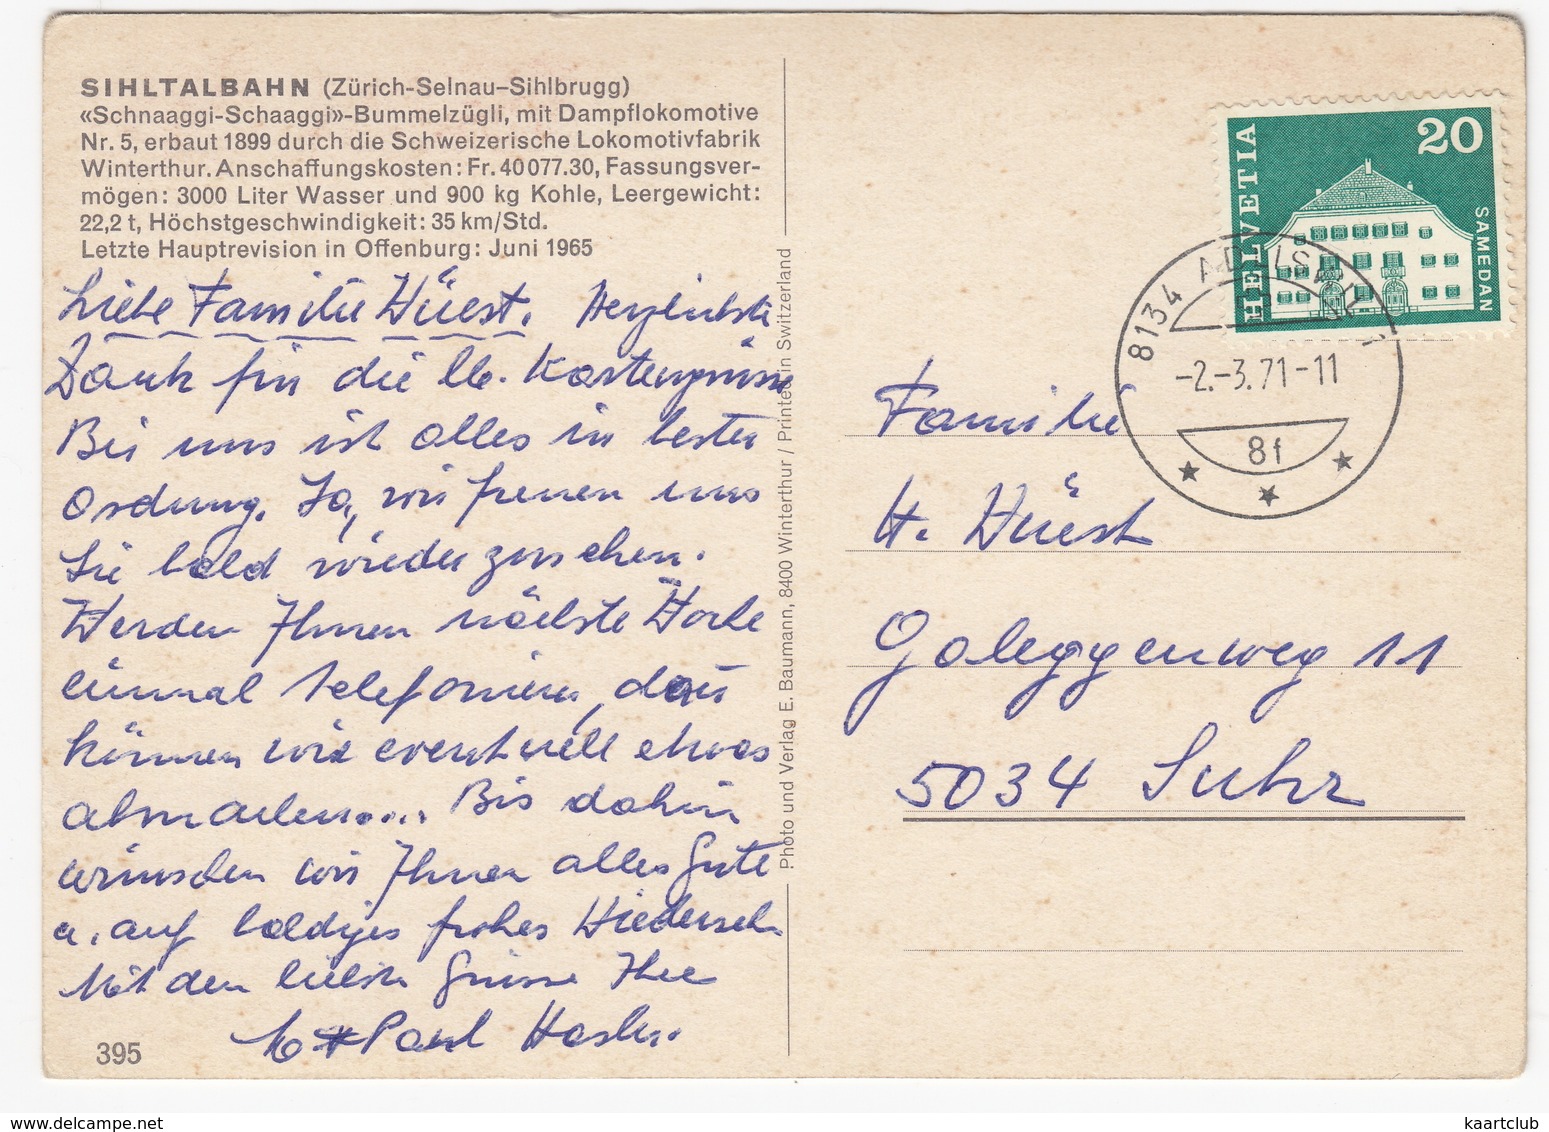 SIHLTALBAHN (Zürich-Selnau–Sihlbrugg)
«Schnaaggi-Schaaggi»-Bummelzügli, mit Dampflokomotive
Nr. 5, erbaut 1899 durch die Schweizerische Lokomotivfabrik
Winterthur. Anschaffungskosten: Fr. 40 077.30, Fassungsver-
mögen: 3000 Liter Wasser und 900 kg Kohle, Leergewicht:
22,2 t, Höchstgeschwindigkeit: 35 km/Std.
Letzte Hauptrevision in Offenburg: Juni 1965
Liebe Familie Wüest. Herzlichste
Dank für die lb. Kartengrüsse
Bei uns ist alles in bester
Ordnung. Ja, wir freuen uns
Sie bald wieder zusehen.
Werden Ihnen nächste Woche
einmal telefonieren, dann
können wir eventuell etwas
abmachen....  Bis dahin
wünschen wir Ihnen alles Gute
u. auf baldiges frohes Wiederseh.
Mit den liebsten Grüsse Ihre
Paul Hasler.
395
Photo und Verlag E. Baumann, 8400 Winterthur / Printed in Switzerland
HELVETIA
20
SAMEDAN
8134 ADLISWIL 1
-2.-3.71-11
8f
Familie
H. Wüest
Galeggenweg 11
5034 Suhr
www.delcampe.net
kaartclub